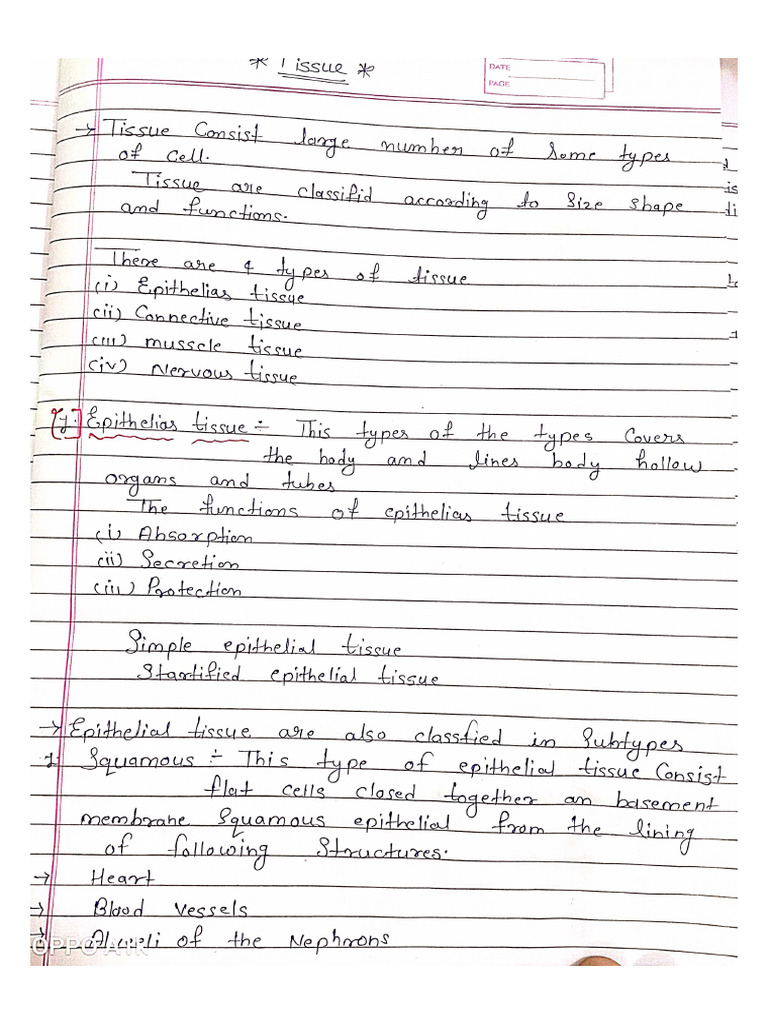 * Tissue *
DATE
PAGE
→ Tissue Consist large number of some types
of cell.
Tissue are classifid according to size shape
and functions.
There are 4 types of tissue
(i) Epithelias tissue
(ii) Connective tissue
(iii) musscle tissue
(iv) Nervous tissue
[1]. Epithelias tissue ÷ This types of the types covers
the body and lines body hollow
organs and tubes
The functions of epithelias tissue
(i) Absorption
(ii) Secretion
(iii) Protection
Simple epithelial tissue
Startified epithelial tissue
→ Epithelial tissue are also classfied in subtypes
1. Squamous ÷ This type of epithelial tissue Consist
flat cells closed together an basement
membrane squamous epithelial from the lining
of following structures.
→ Heart
→ Blood vessels
→ of the Nephrons
OPPO A1K